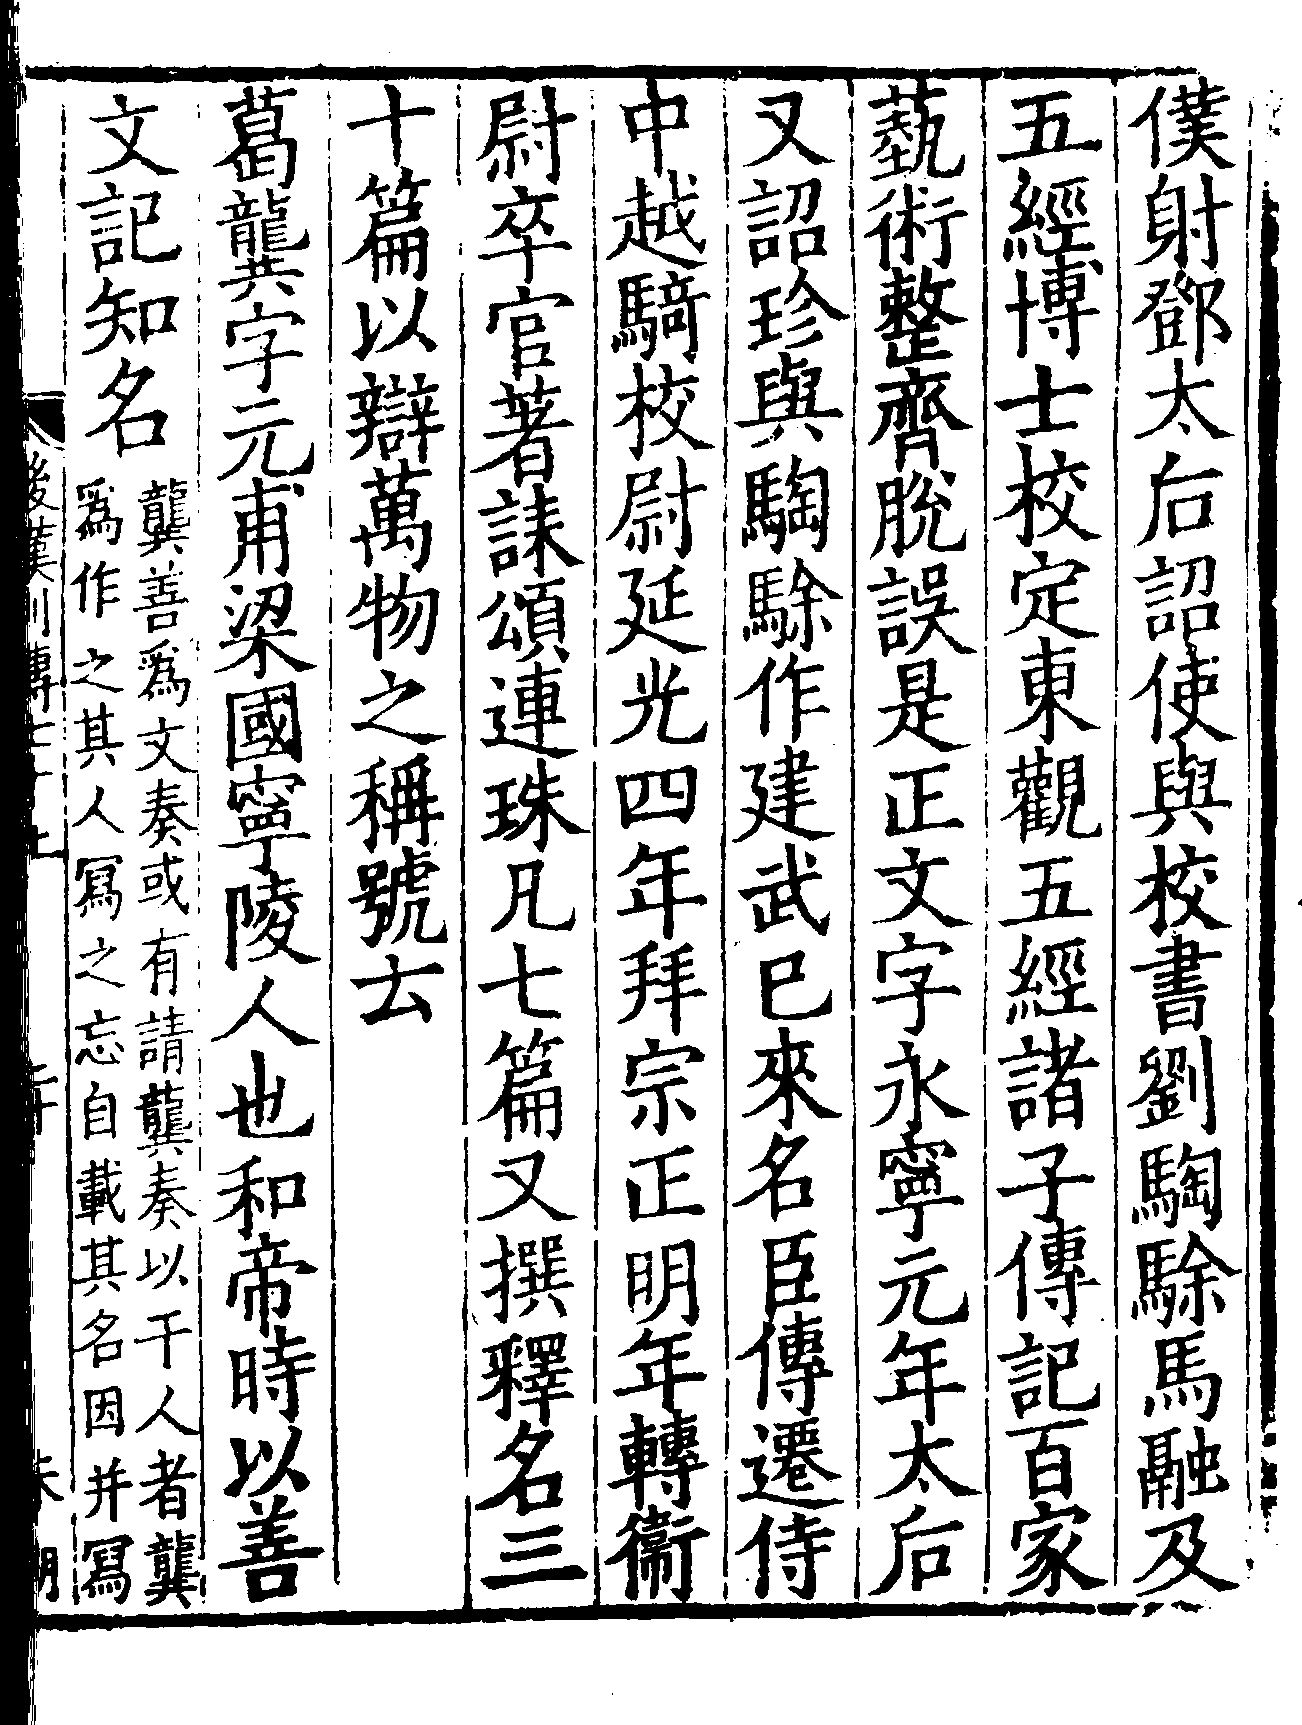 僕射鄧太后詔使與校書劉騊駼馬融及
五經博士校定東觀五經諸子傳記百家
蓺術整齊脫誤是正文字永寧元年太后
又詔珍與騊駼作建武已來名臣傳遷侍
中越騎校尉延光四年拜宗正明年轉衞
尉卒官著誄頌連珠凡七篇又撰釋名三
十篇以辯萬物之稱號云
葛龔字元甫梁國寧陵人也和帝時以善
文記知名
龔善爲文奏或有請龔奏以干人者龔
爲作之其人寫之忘自載其名因并寫
後漢列傳七十上